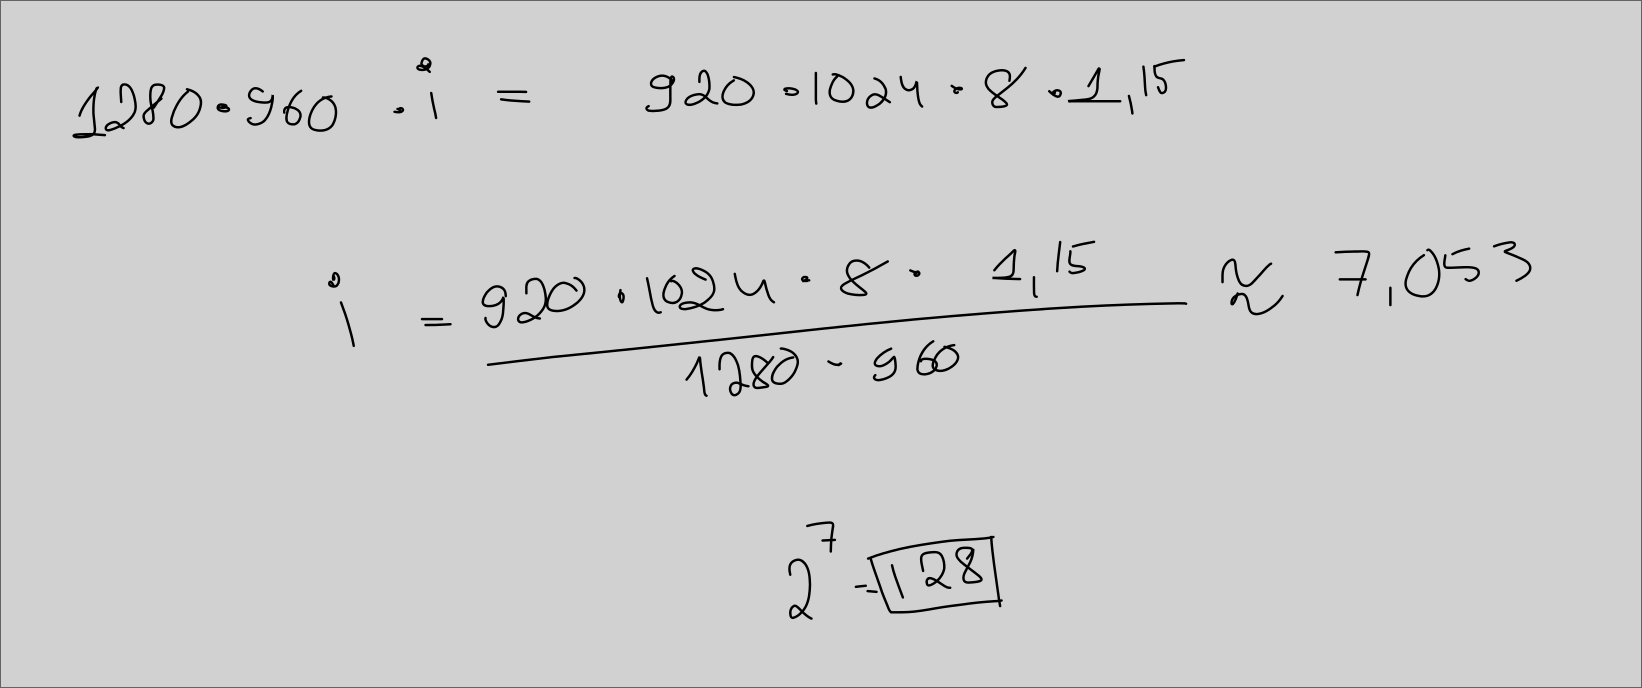 1280·960 · i = 920·1024·8·1,15
i = 920·1024·8·1,15 / 1280·960 ≈ 7,053
2^7 = 128